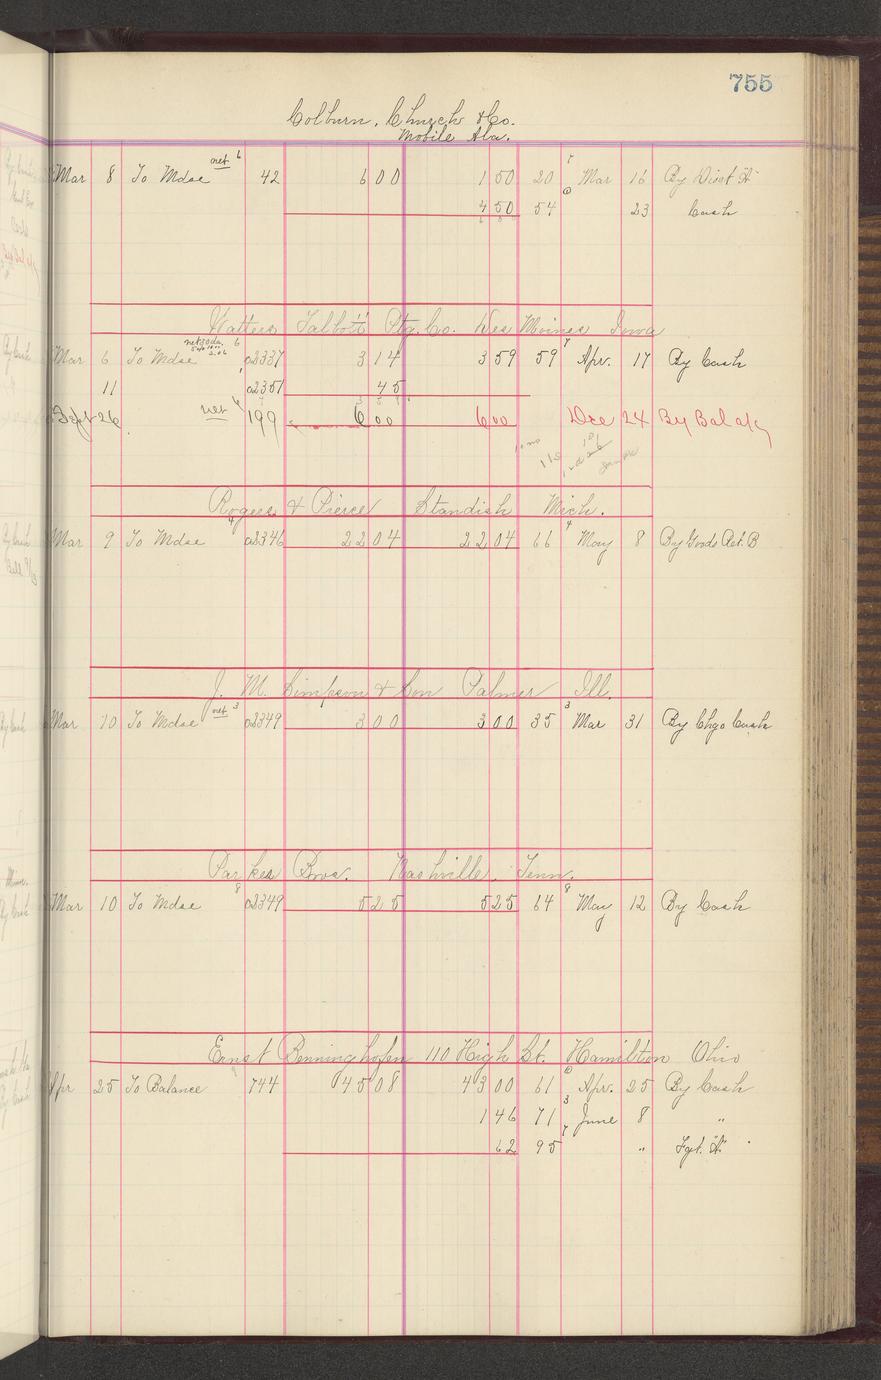 755
Colburn, Church & Co.
Mobile Ala.
Mar 8 To Mdse net 6 42 6 00 1 50 20 7 Mar 16 By Disct "A"
4 50 54 6 23 Cash
6 0 0
Walters Talbott Ptg. Co. Des Moines Iowa
Mar 6 To Mdse 6 a2337 3 14 3 59 59 7 Apr. 17 By Cash
11 a2351 45
3 5 9
Sept 26 net 4 199 6 00 6 00 Dec 24 By Bal a/c
Rogers & Pierce Standish Mich.
Mar 9 To Mdse 4 a2346 22 04 22 04 66 4 May 8 By Goods Ret. B
J. M. Simpson & Son Palmer Ill.
Mar 10 To Mdse net 3 a2349 3 00 3 00 35 3 Mar 31 By Chgo Cash
Parkes Bros. Nashville, Tenn.
Mar 10 To Mdse 8 a2349 5 25 5 25 64 8 May 12 By Cash
Ernst Benninghofen 110 High St. Hamilton Ohio
Apr 25 To Balance 9 744 45 08 43 00 61 6 Apr. 25 By Cash
1 46 71 3 June 8 "
62 95 7 " Fgt. "A"